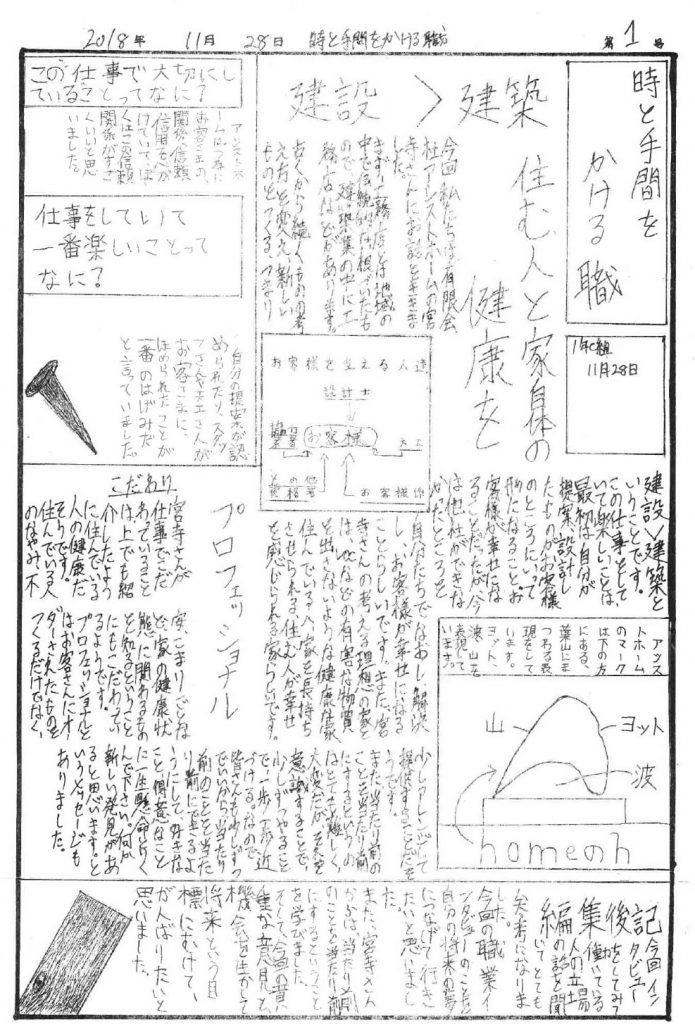 2018年 11月 28日 時と手間をかける職 第1号
時と手間を
かける職
1年C組
11月28日
建設>建築
住む人と家自体の
健康を
今回私たちは有限会
社アシストホームの宮
寺さんにお話をききま
した。
まず工務店とは地域の
中で伝統的な根づいたも
ので、建築業の中に工
務店などがあります。
古くから続くものの考
え方を変え新しい
ものをつくる、つまり
建設>建築と
いうことです。
この仕事をして、
いて楽しいことは、
最初は自分が
提案、設計し
たものがお客様
のところにいって
形になること、お
客様が幸せにな
ることだったが、今
は他社ができな
かったところを
自分たちでなおし、解決
し、お客様が幸せになる
ことがうれしいです。また、宮
寺さんの考える理想の家と
は、
などの有害な物質
を出さないような健康住宅
住んでいる人、家を長持ち
させられる住む人が幸せ
を感じられる家らしいです。
お客様を支える人達
設計士
お客様
大工
お客様
この仕事で大切にし
ていることってなに?
アシストホ
ームは一番に
お客さまの
関係、信頼
信用を心が
けていて、実
くはご夫信頼
関係がすご
くいいと思
いました。
仕事をしていて
一番楽しいことって
なに?
自分の提案が認
められたり、スタッ
フさんや大工さんが
お客さまに、
ほめられたことが
一番のはげみだ
と言っていました。
プロフェッショナル
こだわり
宮寺さんが
仕事でこだ
わっていること
は上でも紹
介したよう
に住んでいる
人の健康だ
そうです。
人のなやみ、不
安、こまりごとな
ど、家の健康状
態に関わるもの
を知るということ
にもこだわってい
るようです。
プロフェッショナルと
はお客さんにオー
ダーされたものを
つくるだけでなく、
少しアレンジして
提供することだそ
うです。
また当たり前の
ことを当たり前
にするというの
はとても難しく
大変だが、それを
意識することで、
少しずつやること
で一歩一歩近
づける。なので、
皆さんも少しずつ
でいいから、当たり
前のことを当た
り前にできるよ
うにして、好きな
こと、得意なこと
に一生懸命とりく
んで下さい。何か
新しい発見があ
ると思います。と
いうメッセージも
ありました。
アシス
トホーム
のマーク
は下の方
にある、
葉山にま
つわる表
現をして
います。
ヨット、
波、山を
表現して
います。
山
ヨット
波
homeのh
編集後記
今回イン
タビュー
をしてみて
働いている
人の立場
の話を聞
いてとても
参考になりま
した。
今回の職業イ
ンタビューのことを
自分の将来の夢
につなげて行き
たいと思いまし
た。
また、宮寺さん
からは、当たり前
のことを当たり前
にするということ
を学びました。
そして、今回の貴
重な意見と
機会を生かして
将来という目
標にむけて、
がんばりたいと
思いました。